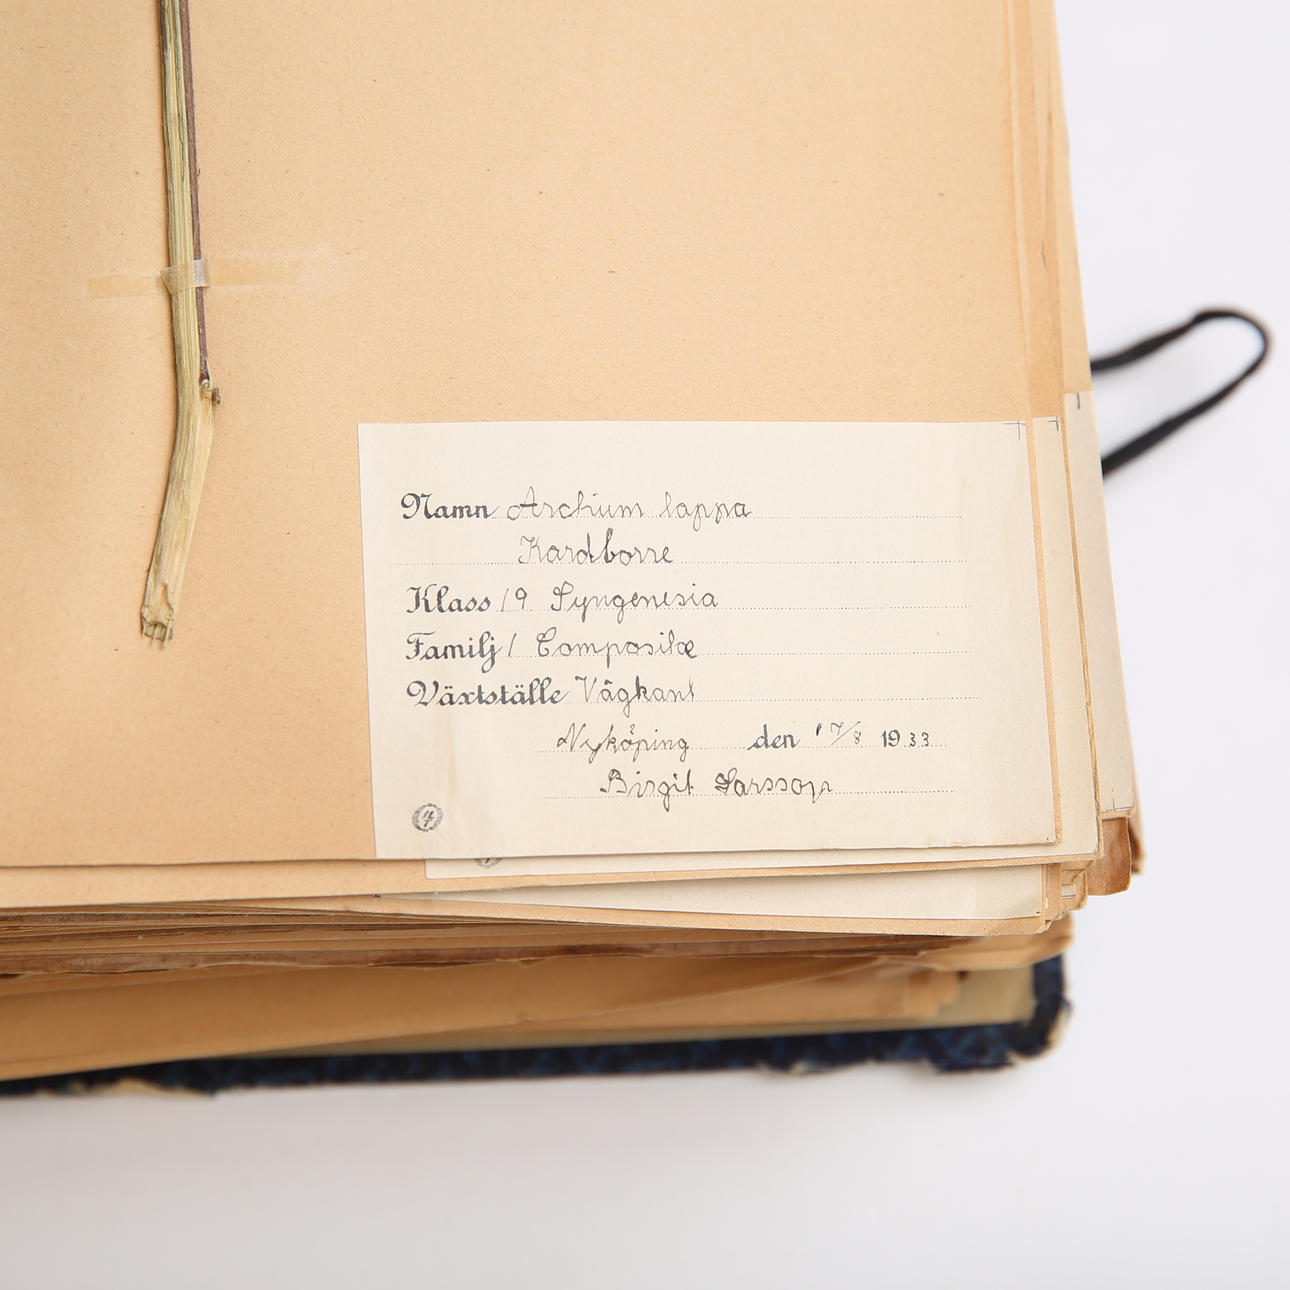 Namn Archium lappa
Kardborre
Klass 19 Syngenesia
Familj 1 Compositæ
Växtställe Vägkant
Nyköping den 17/8 1933
Birgit Larsson
4